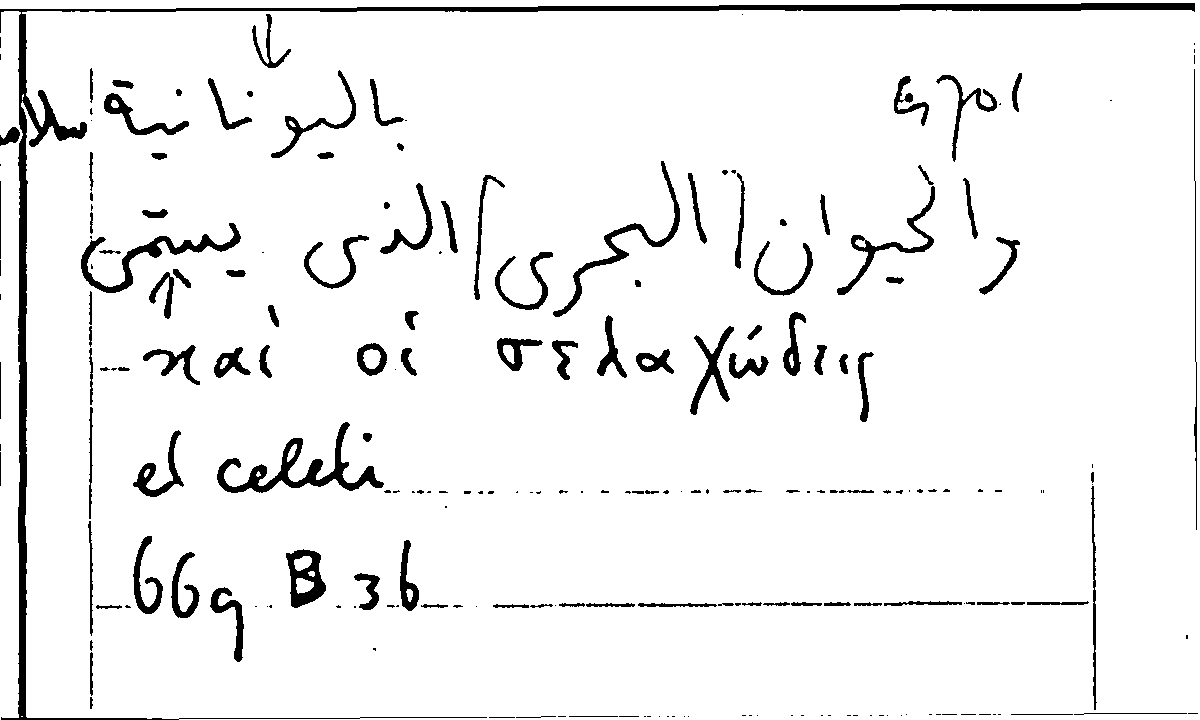 باليونانية
والحيوان [البحرى] الذى يسمّى
καί οἱ σελαχώδεις
el celeti
669 B 36